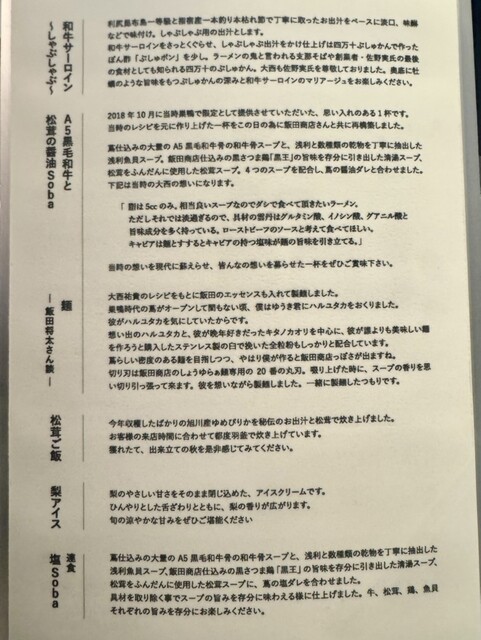 和牛サーロイン
〜しゃぶしゃぶ〜
利尻昆布島一等級と指宿産一本釣り本枯れ節で丁寧に取ったお出汁をベースに淡口、味醂
などで味付け。しゃぶしゃぶ用の出汁とします。
和牛サーロインをさっとくぐらせ、しゃぶしゃぶ出汁をかけ仕上げは四万十ぶしゅかんで作った
ぽん酢「ぶしゅポン」を少し。ラーメンの鬼と言われる支那そばや創業者・佐野実氏の最後
の食材としても知られる四万十のぶしゅかん。大西も佐野実氏を尊敬しておりました。奥底に牡
蠣のような旨味をもつぶしゅかんの深みと和牛サーロインのマリアージュをお楽しみください。
A5黒毛和牛と
松茸の醤油Soba
2018年10月に当時巣鴨で限定として提供させていただいた、思い入れのある1杯です。
当時のレシピを元に作り上げた一杯をこの日の為に飯田商店さんと共に再構築しました。
蔦仕込みの大量のA5黒毛和牛骨の和牛骨スープと、浅利と数種類の乾物を丁寧に抽出した
浅利魚貝スープ。飯田商店仕込みの黒さつま鶏「黒王」の旨味を存分に引き出した清湯スープ、
松茸をふんだんに使用した松茸スープ。4つのスープを配合し、蔦の醤油ダレと合わせました。
下記は当時の大西の想いになります。
「脂は5ccのみ。相当良いスープなのでダシで食べて頂きたいラーメン。
ただしそれでは淡過ぎるので、具材の雲丹はグルタミン酸、イノシン酸、グアニル酸と
旨味成分を多く持っている。ローストビーフのソースと考えて食べてほしい。
キャビアは麺とすするとキャビアの持つ塩味が麺の旨味を引き立てる。」
当時の想いを現代に蘇えらせ、皆んなの想いを募らせた一杯をぜひご賞味下さい。
麺
― 飯田将太さん談 ―
大西祐貴のレシピをもとに飯田のエッセンスも入れて製麺しました。
巣鴨時代の蔦がオープンして間もない頃、僕はゆうき君にハルユタカをおくりました。
彼がハルユタカを気にしていたからです。
想い出のハルユタカと、彼が晩年好きだったキタノカオリを中心に、彼が誰よりも美味しい麺
を作ろうと購入したステンレス製の臼で挽いた全粒粉もしっかりと配合しています。
蔦らしい密度のある麺を目指しつつ、やはり僕が作ると飯田商店っぽさが出ますね。
切り刃は飯田商店のしょうゆらぁ麺専用の20番の丸刃。啜り上げた時に、スープの香りを思
い切り引っ張って来ます。彼を想いながら製麺しました。一緒に製麺したつもりです。
松茸ご飯
今年収穫したばかりの旭川産ゆめぴりかを秘伝のお出汁と松茸で炊き上げました。
お客様の来店時間に合わせて都度羽釜で炊き上げています。
獲れたて、出来立ての秋を是非感じてみてください。
梨アイス
梨のやさしい甘さをそのまま閉じ込めた、アイスクリームです。
ひんやりとした舌ざわりとともに、梨の香りが広がります。
旬の涼やかな甘みをぜひご堪能ください
連食
塩Soba
蔦仕込みの大量のA5黒毛和牛骨の和牛骨スープと、浅利と数種類の乾物を丁寧に抽出した
浅利魚貝スープ。飯田商店仕込みの黒さつま鶏「黒王」の旨味を存分に引き出した清湯スープ、
松茸をふんだんに使用した松茸スープに、蔦の塩ダレを合わせました。
具材を取り除く事でスープの旨みを存分に味わえる様に仕上げました。牛、松茸、鶏、魚貝
それぞれの旨みを存分にお楽しみください。